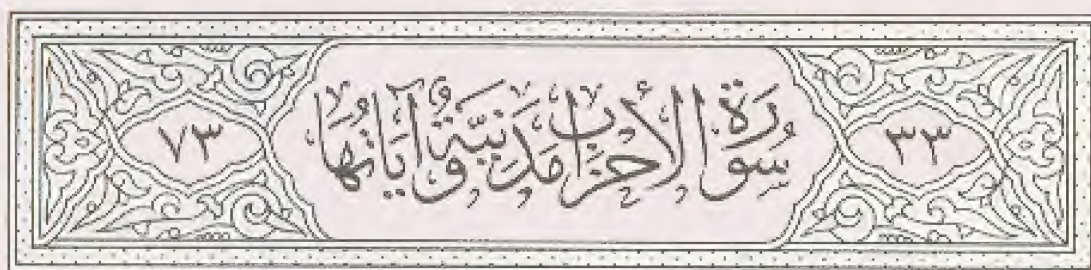 ٣٣ سُوْرَةُ الْأَحْزَابِ مَدَنِيَّةٌ وَآيَاتُهَا ٧٣